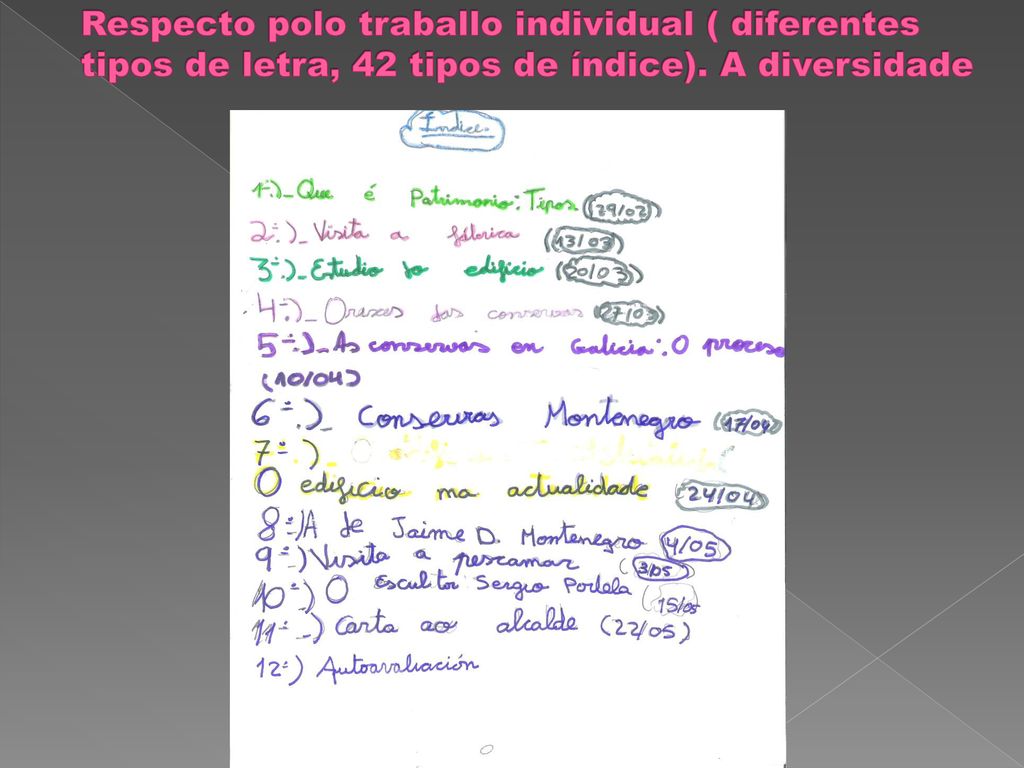 Respecto polo traballo individual ( diferentes
tipos de letra, 42 tipos de índice). A diversidade
Índice.
1-.)_Que é Patrimonio: Tipos (29/02)
2-.)_Visita a fábrica (13/03)
3-.)_Estudio do edificio (20/03)
4-.)_Orixes das conservas (27/03)
5-.)_As conservas en Galicia: O proceso
(10/04)
6-.)_ Conservas Montenegro (17/04)
7-.)_ O
O edificio na actualidade (24/04)
8-.)A de Jaime D. Montenegro 4/05
9-.)Visita a pescamar (3/05)
10-.) O Escultor Sergio Portela (15/05)
11-_) Carta ao alcalde (22/05)
12-) Autoavaliación